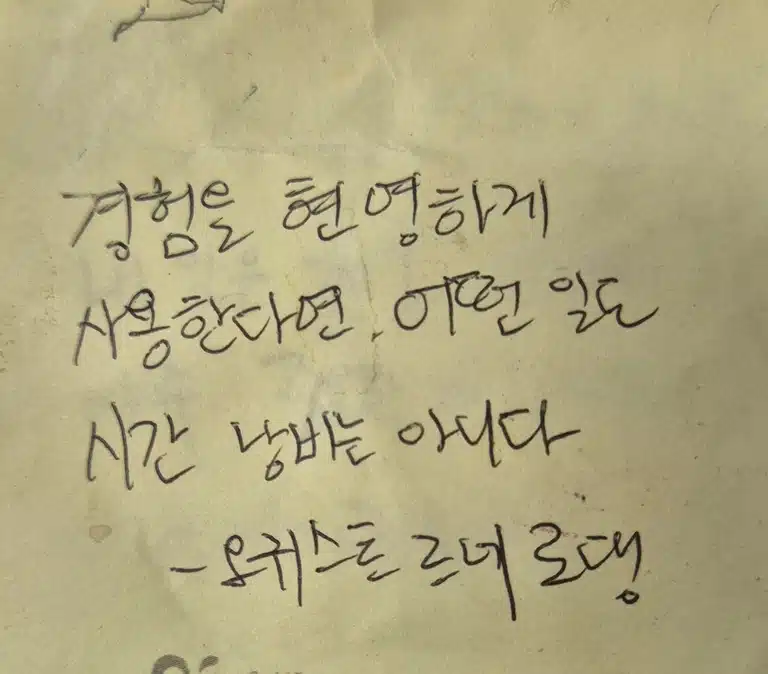 경험을 현명하게
사용한다면, 어떤 일도
시간 낭비는 아니다
- 오귀스트 르네 로댕